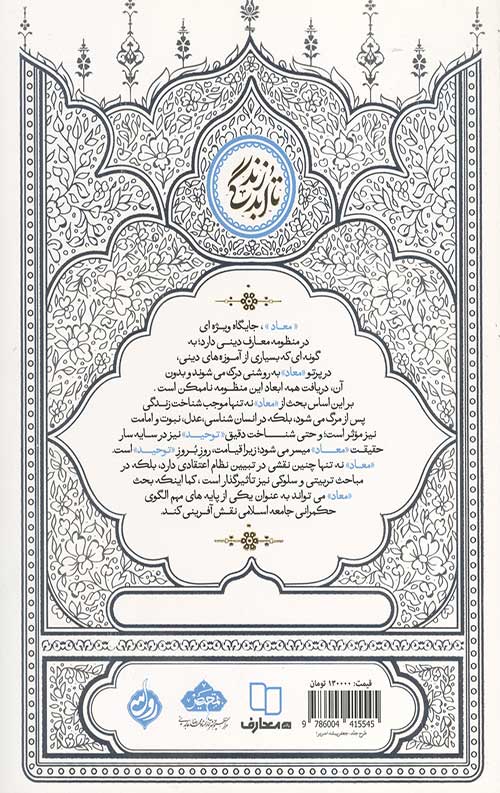 زندگی تا ابدیت
«معاد»، جایگاه ویژه ای
در منظومه معارف دینی دارد؛ به
گونه ای که بسیاری از آموزه های دینی،
در پرتو «معاد» به روشنی درک می شوند و بدون
آن، دریافت همه ابعاد این منظومه ناممکن است.
بر این اساس بحث از «معاد» نه تنها موجب شناخت زندگی
پس از مرگ می شود، بلکه در انسان شناسی، عدل، نبوت و امامت
نیز مؤثر است؛ و حتی شناخت دقیق «توحید» نیز در سایه سار
حقیقت «معاد» میسر می شود؛ زیرا قیامت، روز بُروز «توحید» است.
«معاد» نه تنها چنین نقشی در تبیین نظام اعتقادی دارد، بلکه در
مباحث تربیتی و سلوکی نیز تأثیرگذار است، کما اینکه بحث
«معاد» می تواند به عنوان یکی از پایه های مهم الگوی
حکمرانی جامعه اسلامی نقش آفرینی کند.
قیمت: ۱۳۰۰۰۰ تومان
9 786004 415545
معارف
تمحیص